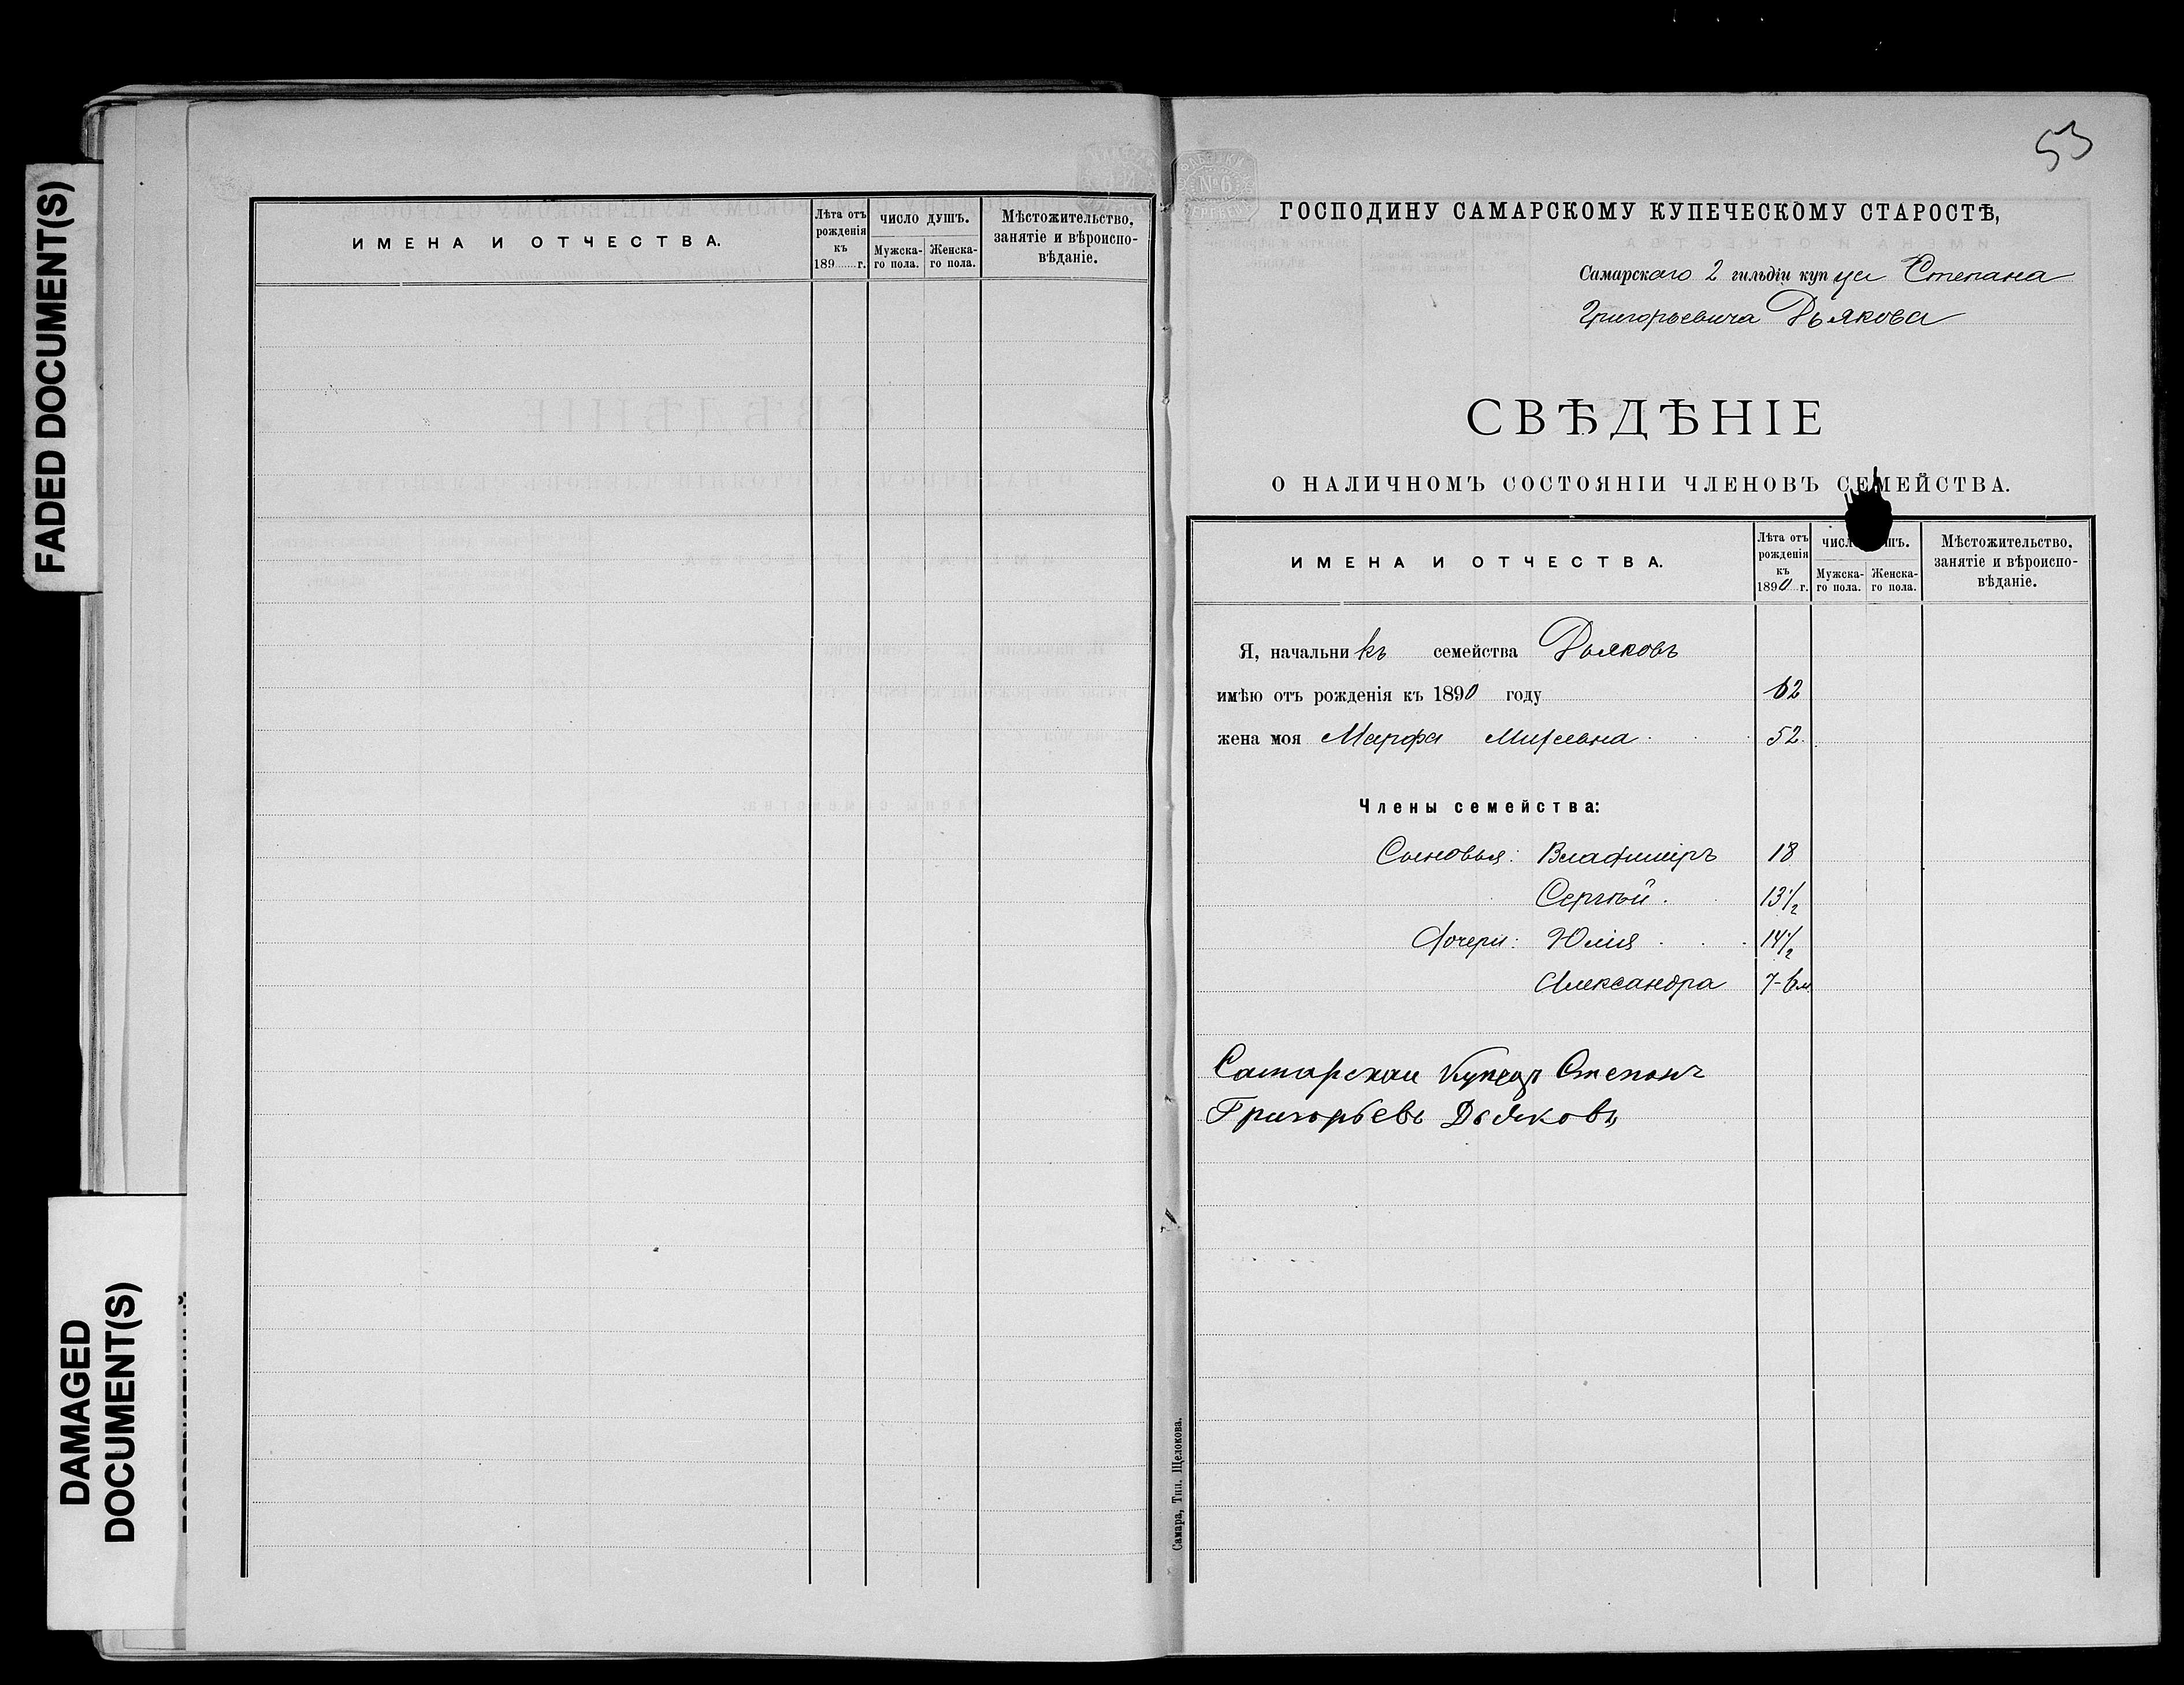 FADED DOCUMENT(S)
DAMAGED
DOCUMENT(S)
ИМЕНА И ОТЧЕСТВА.
Лѣта отъ рожденія къ 189 г.
ЧИСЛО ДУШЪ.
Мужска-го пола.
Женска-го пола.
Мѣстожительство, занятіе и вѣроиспо-вѣданіе.
53
№6
ГОСПОДИНУ САМАРСКОМУ КУПЕЧЕСКОМУ СТАРОСТѢ,
Самарскаго 2 гильдіи купца Степана
Григорьевича Дьякова
СВѢДѢНІЕ
О НАЛИЧНОМЪ СОСТОЯНІИ ЧЛЕНОВЪ СЕМЕЙСТВА.
ИМЕНА И ОТЧЕСТВА.
Лѣта отъ рожденія къ 1890 г.
Мужска-го пола.
Женска-го пола.
Мѣстожительство, занятіе и вѣроиспо-вѣданіе.
Я, начальникъ семейства Дьяковъ
имѣю отъ рожденія къ 1890 году 62
жена моя Марфа 52.
Члены семейства:
Сыновья: Владиміръ 18
Сергѣй. 13 1/2
Дочери: Юлія 14 1/2
Александра 7-6 м.
Самарскаи Купецъ Степанъ
Григорьевъ Дьяковъ
Самара, Тип. Щелокова.